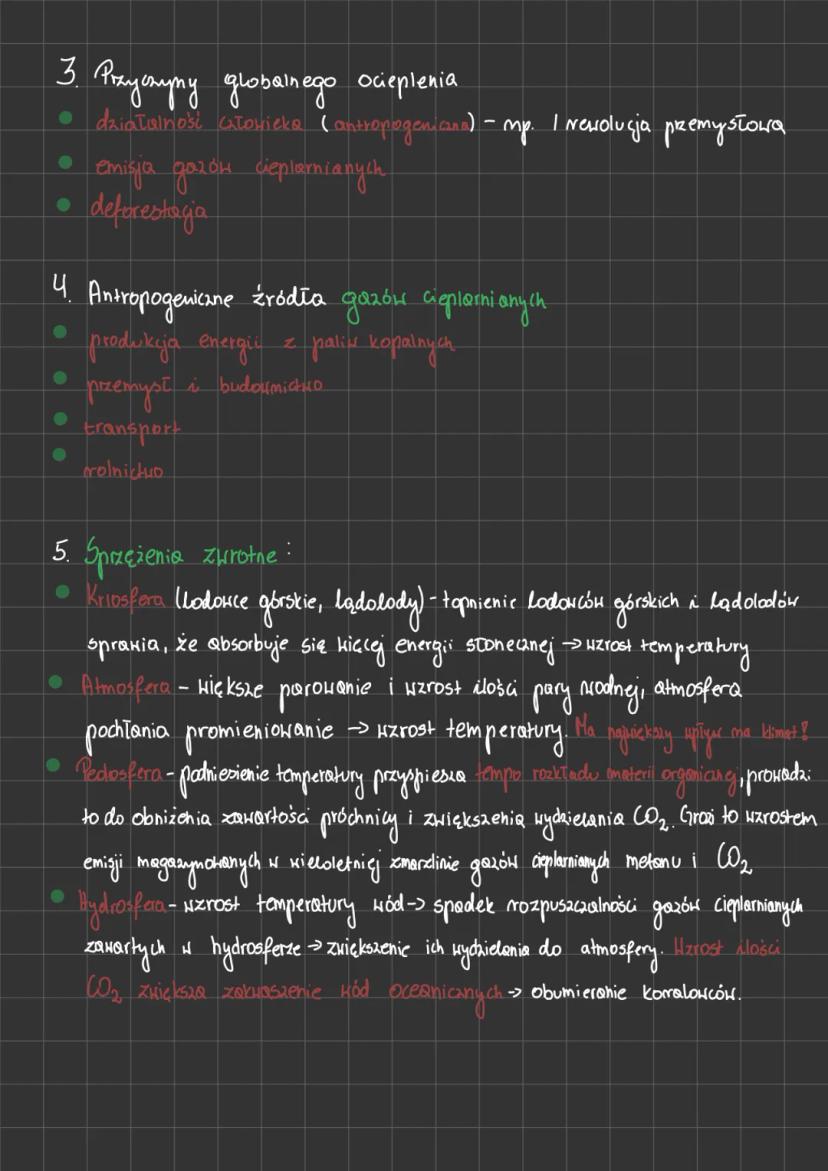 3. Przyczyny globalnego ocieplenia
działalność człowieka (antropogeniczna) - np. I rewolucja przemysłowa
emisja gazów cieplarnianych
deforestacja
4. Antropogeniczne źródła gazów cieplarnianych
produkcja energii z paliw kopalnych
przemysł i budownictwo
transport
rolnictwo
5. Sprzężenia zwrotne:
Kriosfera (lodowce górskie, lądolody) - topnienie lodowców górskich i lądolodów
sprawia, że absorbuje się więcej energii słonecznej → wzrost temperatury
Atmosfera - większe parowanie i wzrost ilości pary wodnej, atmosfera
pochłania promieniowanie → wzrost temperatury. Ma największy wpływ na klimat!
Pedosfera - podniesienie temperatury przyspiesza tempo rozkładu materii organicznej, prowadzi
to do obniżenia zawartości próchnicy i zwiększenia wydzielania CO₂. Grozi to wzrostem
emisji magazynowanych w wieloletniej zmarzlinie gazów cieplarnianych metanu i CO₂
Hydrosfera - wzrost temperatury wód -> spadek rozpuszczalności gazów cieplarnianych
zawartych w hydrosferze → zwiększenie ich wydzielania do atmosfery. Wzrost ilości
CO₂ zwiększa zakwaszenie wód oceanicznych -> obumieranie koralowców.